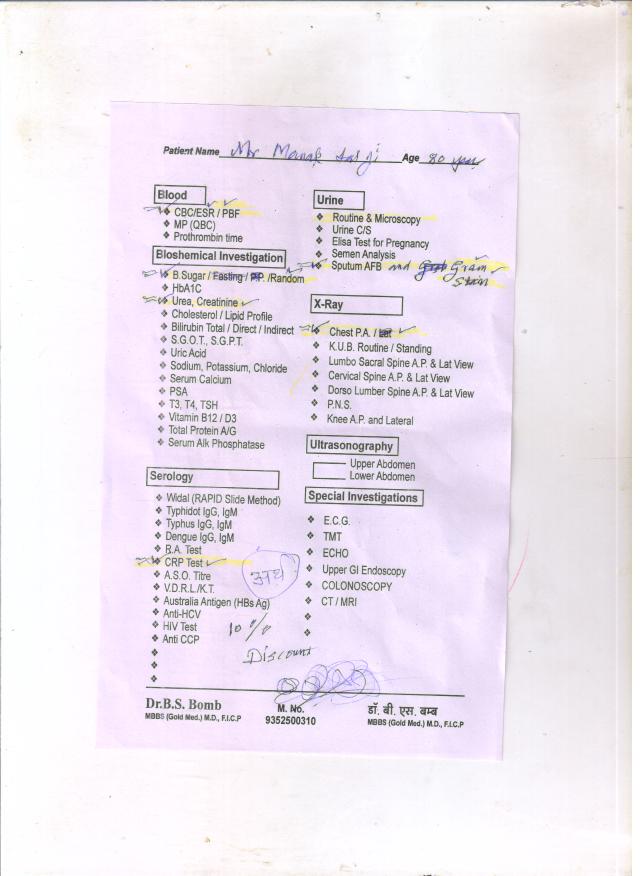 Patient Name Mr Manak Lal ji Age 80 year
Blood
❖ CBC/ESR / PBF
❖ MP (QBC)
❖ Prothrombin time
Bioshemical Investigation
❖ B.Sugar / Fasting / P.P. /Random
❖ HbA1C
❖ Urea, Creatinine
❖ Cholesterol / Lipid Profile
❖ Bilirubin Total / Direct / Indirect
❖ S.G.O.T., S.G.P.T.
❖ Uric Acid
❖ Sodium, Potassium, Chloride
❖ Serum Calcium
❖ PSA
❖ T3, T4, TSH
❖ Vitamin B12 / D3
❖ Total Protein A/G
❖ Serum Alk Phosphatase
Serology
❖ Widal (RAPID Slide Method)
❖ Typhidot IgG, IgM
❖ Typhus IgG, IgM
❖ Dengue IgG, IgM
❖ R.A. Test
❖ CRP Test
❖ A.S.O. Titre
❖ V.D.R.L./K.T.
❖ Australia Antigen (HBs Ag)
❖ Anti-HCV
❖ HIV Test
❖ Anti CCP
Urine
❖ Routine & Microscopy
❖ Urine C/S
❖ Elisa Test for Pregnancy
❖ Semen Analysis
❖ Sputum AFB and Gram
Stain
X-Ray
❖ Chest P.A. / Lat
❖ K.U.B. Routine / Standing
❖ Lumbo Sacral Spine A.P. & Lat View
❖ Cervical Spine A.P. & Lat View
❖ Dorso Lumber Spine A.P. & Lat View
❖ P.N.S.
❖ Knee A.P. and Lateral
Ultrasonography
Upper Abdomen
Lower Abdomen
Special Investigations
❖ E.C.G.
❖ TMT
❖ ECHO
❖ Upper GI Endoscopy
❖ COLONOSCOPY
❖ CT / MRI
10%
Discount
Dr.B.S. Bomb
MBBS (Gold Med.) M.D., F.I.C.P
M. No.
9352500310
डॉ. बी. एस. बम्ब
MBBS (Gold Med.) M.D., F.I.C.P